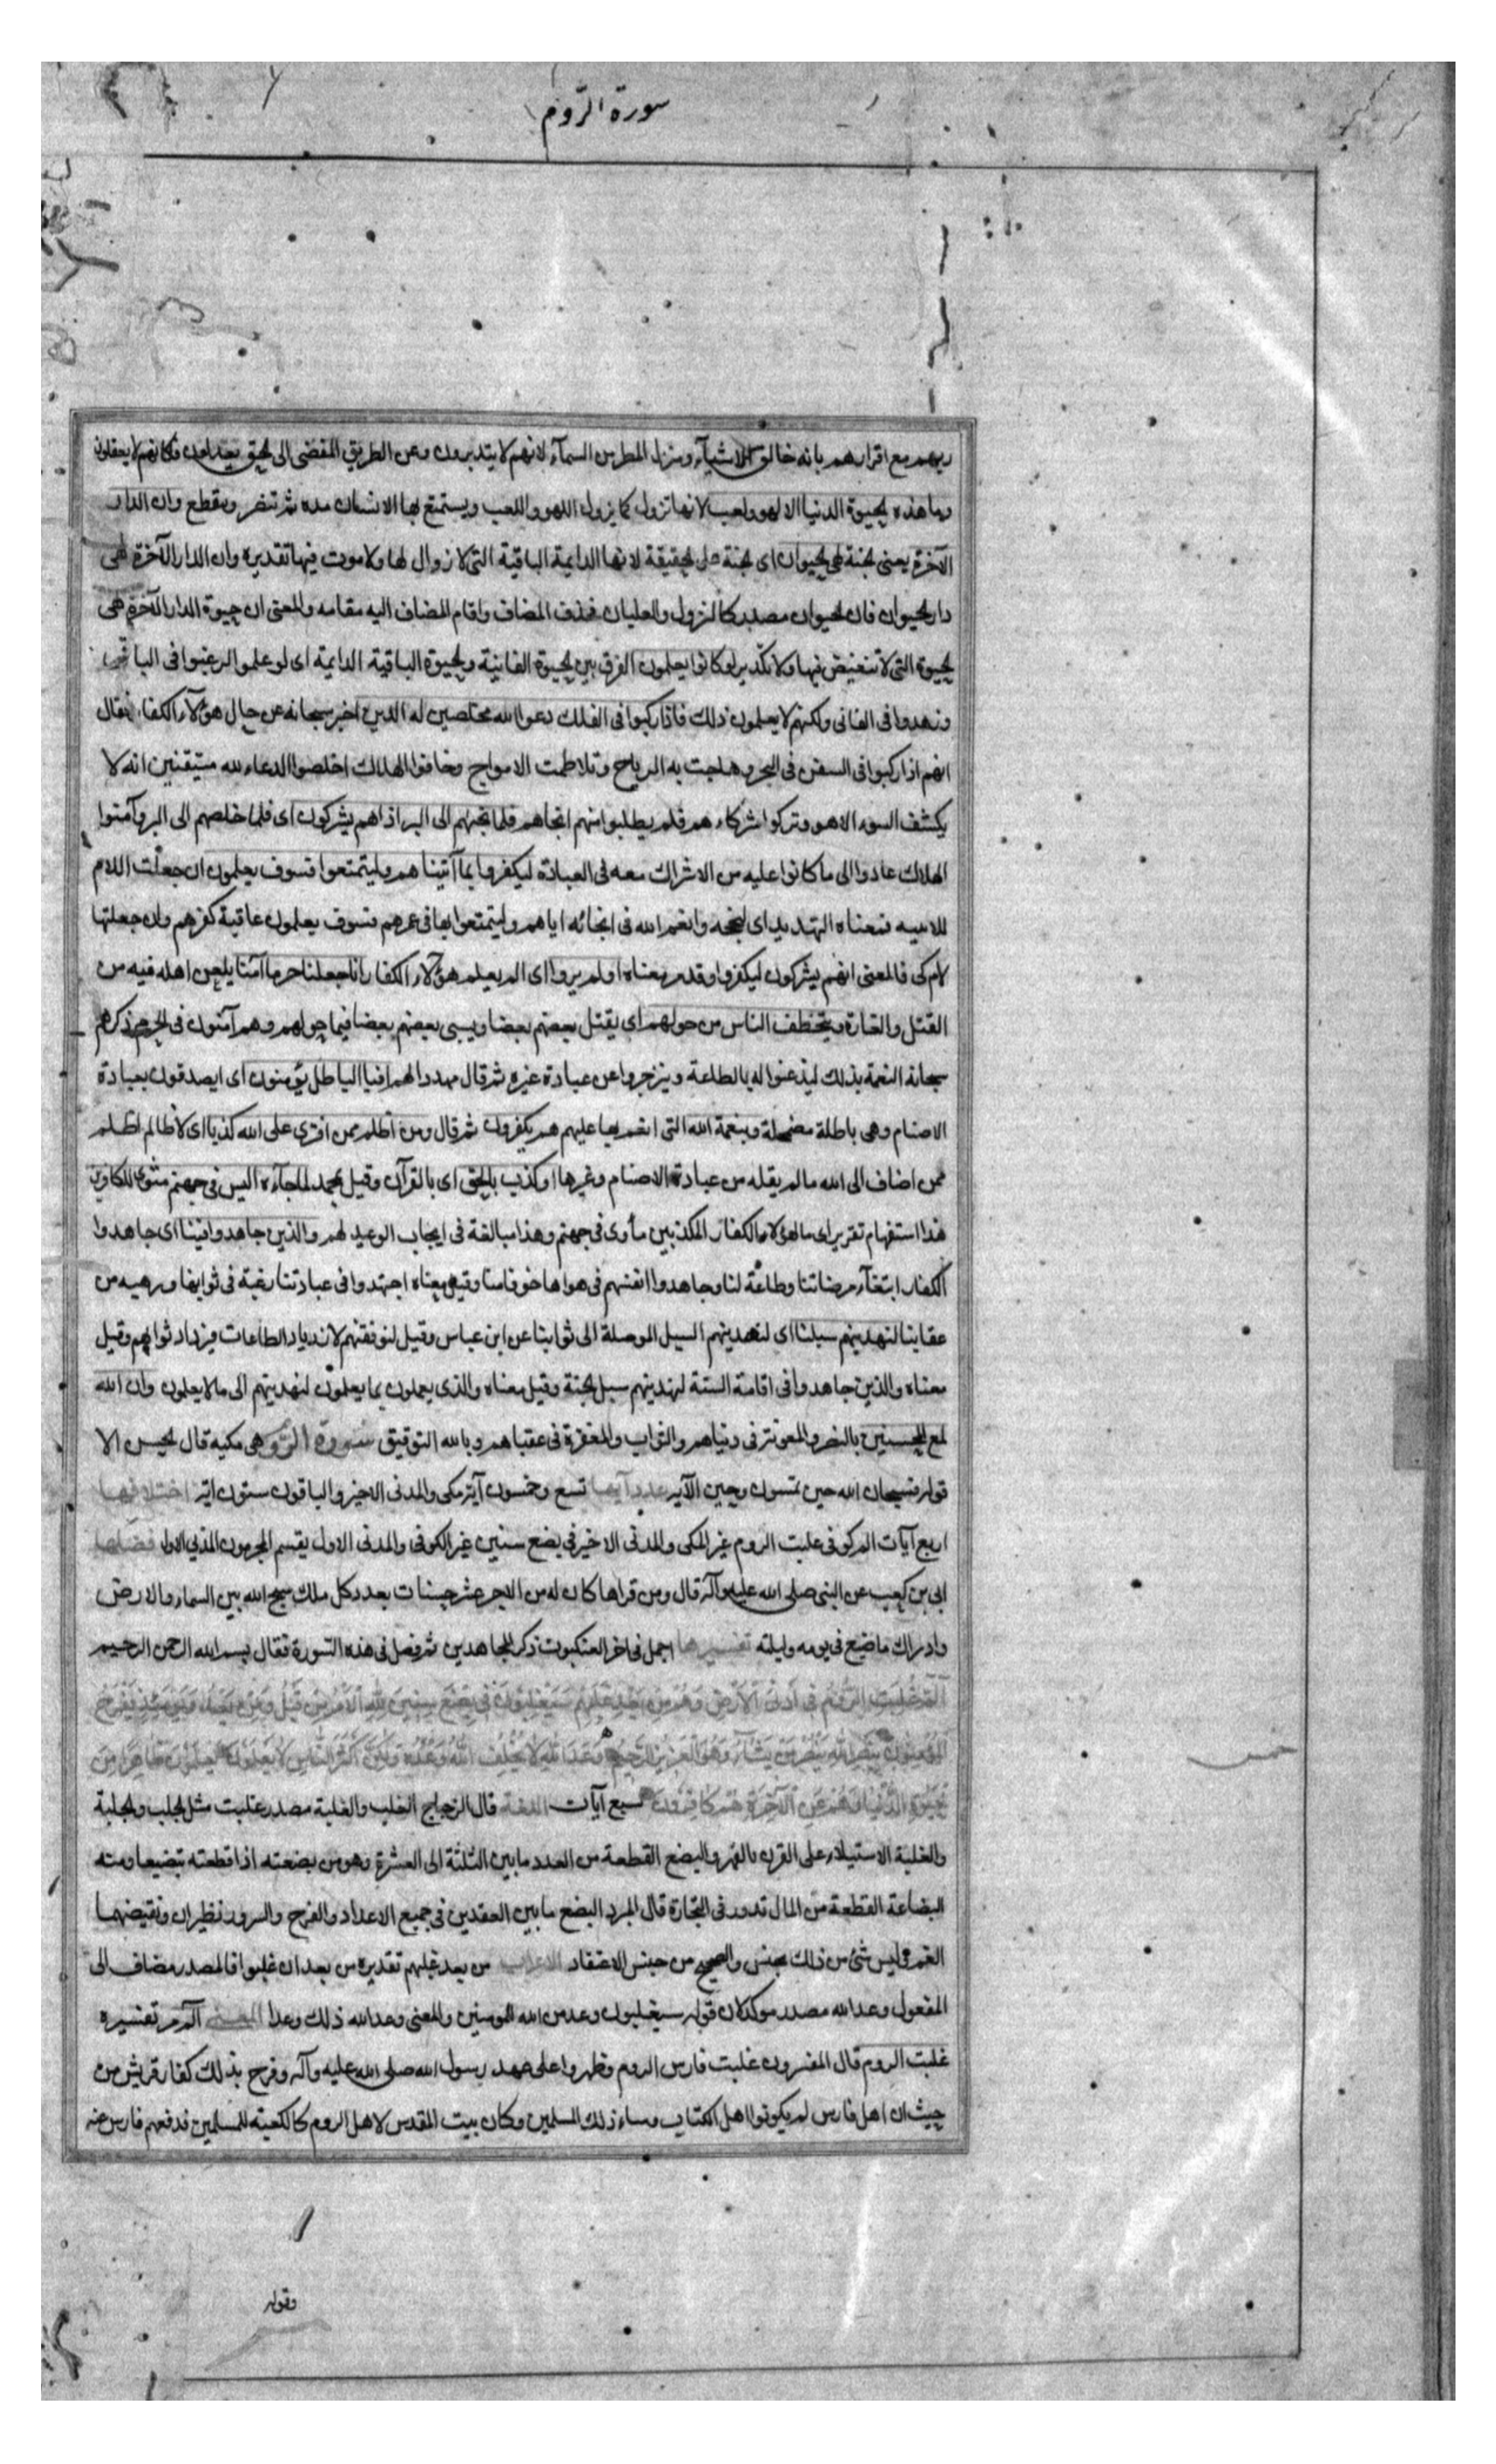 سورة الروم
ربهم مع اقرارهم بانه خالق الاشياء ومنزل المطر من السماء لانهم لا يتدبرون وعن الطريق المفضى الى الحق يعدلون فكانهم لا يعقلون
وما هذه الحيوة الدنيا الا لهو ولعب لانها تزول كما يزول اللهو واللعب ويستمتع بها الانسان مدة ثم تنصرم وتنقطع وان الدار
الآخرة يعنى الجنة لهى الحيوان اى الجنة على الحقيقة لانها الدايمة الباقية التى لا زوال لها ولا موت فيها تقديره وان الدار الآخرة لهى
دار الحيوان فان الحيوان مصدر كالنزوان والغليان فحذف المضاف واقام المضاف اليه مقامه والمعنى ان حيوة الدار الآخرة هى
الحيوة التى لا تنغيص فيها ولا تكدير لو كانوا يعلمون الفرق بين الحيوة الفانية والحيوة الباقية الدايمة اى لو علموا لرغبوا فى الباقى
وزهدوا فى الفانى ولكنهم لا يعلمون ذلك فاذا ركبوا فى الفلك دعوا الله مخلصين له الدين اخبر سبحانه عن حال هؤلاء الكفار فقال
انهم اذا ركبوا فى السفن فى البحر وهاجت به الرياح وتلاطمت الامواج وخافوا الهلاك اخلصوا الدعاء لله مستيقنين انه لا
يكشف السوء الا هو وتركوا شركاءهم فلم يطلبوا منهم انجاهم فلما نجيهم الى البر اذا هم يشركون اى فلما خلصهم الى البر وآمنوا
الهلاك عادوا الى ما كانوا عليه من الاشراك معه فى العبادة ليكفروا بما آتيناهم وليتمتعوا فسوف يعلمون ان جعلت اللام
للامر فمعناه التهديد اى ليجحدوا نعم الله فى انجائه اياهم وليتمتعوا بها فى عمرهم فسوف يعلمون عاقبة كفرهم وان جعلتها
لام كى فالمعنى انهم يشركون ليكفروا وقد مر معناه اولم يروا اى الم يعلم هؤلاء الكفار انا جعلنا حرما آمنا يامن اهله فيه من
القتل والغارة ويتخطف الناس من حولهم اى يقتل بعضهم بعضا ويسبى بعضهم بعضا فيما حولهم وهم آمنون فى الحرم ذكرهم
سبحانه النعمة بذلك ليذعنوا له بالطاعة وينزجروا عن عبادة غيره ثم قال مهددا لهم افبالباطل يؤمنون اى ايصدقون بعبادة
الاصنام وهى باطلة مضمحلة وبنعمة الله التى انعم بها عليهم هم يكفرون ثم قال ومن اظلم ممن افترى على الله كذبا اى لا ظالم اظلم
ممن اضاف الى الله ما لم يقله من عبادة الاصنام وغيرها او كذب بالحق اى بالقرآن وقيل بمحمد لما جآءه اليس فى جهنم مثوى للكافرين
هذا استفهام تقرير اى ما لهؤلاء الكفار المكذبين مأوى فى جهنم وهذا مبالغة فى ايجاب الوعيد لهم والذين جاهدوا فينا اى جاهدوا
الكفار ابتغآء مرضاتنا وطاعة لنا وجاهدوا انفسهم فى هواها خوفا منا وقيل معناه اجتهدوا فى عبادتنا رغبة فى ثوابنا ورهبة من
عقابنا لنهدينهم سبلنا اى لنهدينهم السبل الموصلة الى ثوابنا عن ابن عباس وقيل لنوفقنهم لازدياد الطاعات فيزداد ثوابهم وقيل
معناه والذين جاهدوا فى اقامة السنة لنهدينهم سبل الجنة وقيل معناه والذى يعملون بما يعلمون لنهدينهم الى ما لا يعلمون وان الله
لمع المحسنين بالنصر والمعونة فى دنياهم والثواب والمغفرة فى عقباهم وبالله التوفيق سورة الروم هى مكية قال الحسن الا
قوله فسبحان الله حين تمسون وحين الآية عدد آيها تسع وخمسون آية مكى والمدنى الاخير والباقون ستون آية اختلافها
اربع آيات الم كوفى غلبت الروم غير المكى والمدنى الاخير فى بضع سنين غير الكوفى والمدنى الاول يقسم المجرمون المدنى الاول فضلها
ابى بن كعب عن النبى صلى الله عليه وآله قال ومن قراها كان له من الاجر عشر حسنات بعدد كل ملك سبح الله بين السماء والارض
وادراك ما ضيع فى يومه وليلته تفسيرها اجمل فى اخر العنكبوت ذكر المجاهدين ثم فصل فى هذه السورة فقال بسم الله الرحمن الرحيم
الم غلبت الروم فى ادنى الارض وهم من بعد غلبهم سيغلبون فى بضع سنين لله الامر من قبل ومن بعد ويومئذ يفرح
المؤمنون بنصر الله ينصر من يشآء وهو العزيز الرحيم وعد الله لا يخلف الله وعده ولكن اكثر الناس لا يعلمون يعلمون ظاهرا من
الحيوة الدنيا وهم عن الآخرة هم كافرون سبع آيات اللغة قال الزجاج الغلب والغلبة مصدر غلبت مثل الجلب والجلبة
والغلبة الاستيلاء على القرن بالقهر والبضع القطعة من العدد ما بين الثلثة الى العشرة وهو من بضعته اذا قطعته تبضيعا ومنه
البضاعة القطعة من المال تدور فى التجارة قال المبرد البضع ما بين العقدين فى جميع الاعداد والفرح والسرور نظيران ونقيضهما
الغم وليس شئ من ذلك بجنس والصحيح من جنس الاعتقاد الاعراب من بعد غلبهم تقديره من بعد ان غلبوا فالمصدر مضاف الى
المفعول وعد الله مصدر موكد لان قوله سيغلبون وعد من الله للمومنين والمعنى وعد الله ذلك وعدا المعنى الم مر تفسيره
غلبت الروم قال المفسرون غلبت فارس الروم وظهروا على عهد رسول الله صلى الله عليه وآله وفرح بذلك كفار قريش من
حيث ان اهل فارس لم يكونوا اهل الكتاب وساء ذلك المسلمين وكان بيت المقدس لاهل الروم كالكعبة للمسلمين فدفعهم فارس عنه
وقوله